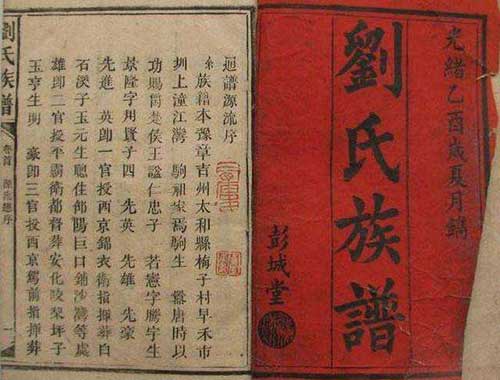 光緒乙酉歲夏月鐫
劉氏族譜
彭城堂
譜源流序
族籍本豫章吉州太和縣梅子村早禾市
圳上潼江灣 駒祖家焉駒生 唐時以
功賜爵楚侯王諡仁忠子 若憲字騰宇生
景隆字用賢子四 先英 先雄 先豪
先進 英卽一官授西京錦衣衛指揮葬白
石渡子玉元生聰住邵陽巨口鋪沙灣等處
雄卽二官授平霸衛都督葬安化陵栗坪子
玉亨生明 豪卽三官授西京駕前指揮葬
劉氏族譜
卷首 源流總序 一